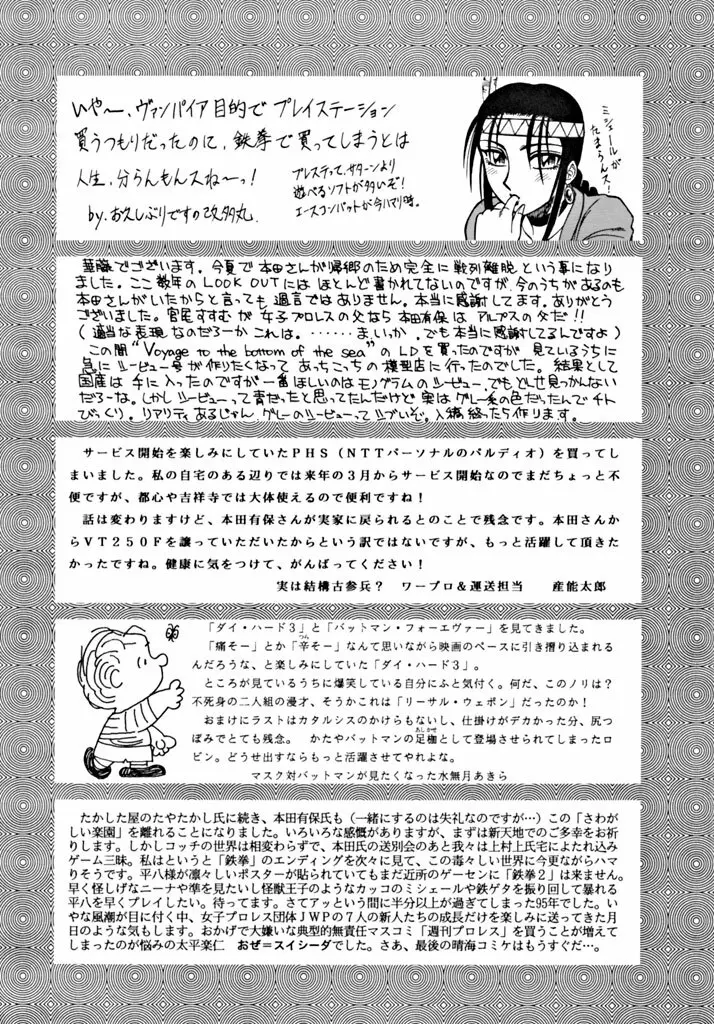 いや〜、ヴァンパイア目的で プレイステーション
買うつもりだったのに、鉄拳で買ってしまうとは
人生、分らんもんスね〜っ!
by.お久しぶりですの改多丸
プレステって、サターンより
遊べるソフトが多いぞ!
エースコンバットが今ハマり時。
ミシェールが
たまらんス!
華藤でございます。今夏で本田さんが帰郷のため完全に戦列離脱という事になり
ました。ここ数年のLOOK OUTにはほとんど書かれてないのですが、今のうちがあるのも
本田さんがいたからと言っても過言ではありません。本当に感謝してます。ありがとう
ございました。宮尾すすむが女子プロレスの父なら本田有保はアルプスの父だ!!
(適当な表現なのだろーかこれは。……ま、いっか、でも本当に感謝してるんですよ)
この間“Voyage to the bottom of the sea”のLDを買ったのですが見ているうちに
急にシービュー号が作りたくなってあっちこっちの模型店に行ったのでした。結果として
国産は手に入ったのですが一番ほしいのはモノグラムのシービュー、でもどしせ見っかんない
だろーな。しかしシービューって青だったと思ってたんだけど実はグレー系の色だったんでチト
びっくり。リアリティあるじゃん、グレーのシービューってシブいぞ。入稿終ったら作ります。
サービス開始を楽しみにしていたPHS(NTTパーソナルのパルディオ)を買ってし
まいました。私の自宅のある辺りでは来年の3月からサービス開始なのでまだちょっと不
便ですが、都心や吉祥寺では大体使えるので便利ですね!
話は変わりますけど、本田有保さんが実家に戻られるとのことで残念です。本田さんか
らVT250Fを譲っていただいたからという訳ではないですが、もっと活躍して頂きた
かったですね。健康に気をつけて、がんばってください!
実は結構古参兵? ワープロ&運送担当 産能太郎
「ダイ・ハード3」と「バットマン・フォーエヴァー」を見てきました。
「痛そー」とか「辛そー」なんて思いながら映画のペースに引き摺り込まれる
んだろうな、と楽しみにしていた「ダイ・ハード3」。
ところが見ているうちに爆笑している自分にふと気付く。何だ、このノリは?
不死身の二人組の漫才、そうかこれは「リーサル・ウェポン」だったのか!
おまけにラストはカタルシスのかけらもないし、仕掛けがデカかった分、尻つ
ぼみでとても残念。 かたやバットマンの足枷として登場させられてしまったロ
ビン。どうせ出すならもっと活躍させてやれよな。
マスク対バットマンが見たくなった水無月あきら
たかした屋のたやたかし氏に続き、本田有保氏も(一緒にするのは失礼なのですが…)この「さわが
しい楽園」を離れることになりました。いろいろな感慨がありますが、まずは新天地でのご多幸をお祈
りします。しかしコッチの世界は相変わらずで、本田氏の送別会のあと我々は上村上氏宅によたれ込み
ゲーム三昧。私はというと「鉄拳」のエンディングを次々に見て、この毒々しい世界に今更ながらハマ
りそうです。平八様が凛々しいポスターが貼られていてもまだ近所のゲーセンに「鉄拳2」は来ません。
早く怪しげなニーナや準を見たいし怪獣王子のようなカッコのミシェールや鉄ゲタを振り回して暴れる
平八を早くプレイしたい。待ってます。さてアッという間に半分以上が過ぎてしまった95年でした。い
やな風潮が目に付く中、女子プロレス団体JWPの7人の新人たちの成長だけを楽しみに送ってきた月
日のような気もします。おかげで大嫌いな典型的無責任マスコミ「週刊プロレス」を買うことが増えて
しまったのが悩みの太平楽仁 おぜ=スイシーダでした。さあ、最後の晴海コミケはもうすぐだ…。